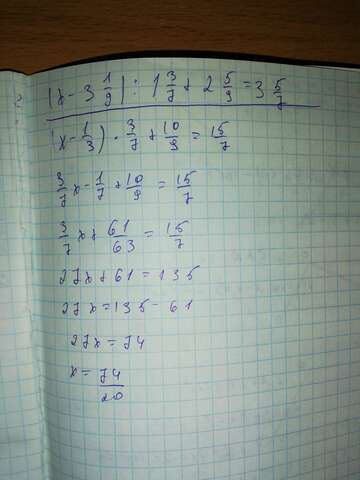 |x - 3 1/9| : 1 3/7 + 2 5/9 = 3 5/7
(x - 1/3) · 3/7 + 10/9 = 15/7
3/7 x - 1/7 + 10/9 = 15/7
3/7 x + 61/63 = 15/7
27x + 61 = 135
27x = 135 - 61
27x = 74
x = 74/20